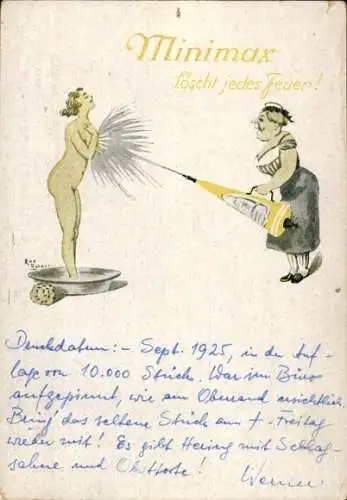 Minimax
löscht jedes Feuer!
Druckdatum:- Sept. 1925, in der Auf-
lage von 10.000 Stück. War im Büro
aufgepinnt, wie am Oberrand ersichtlich.
Bring' das seltene Stück am +-Freitag
wieder mit! Es gibt Hering mit Schlag-
sahne und Obsttorte!
Werner